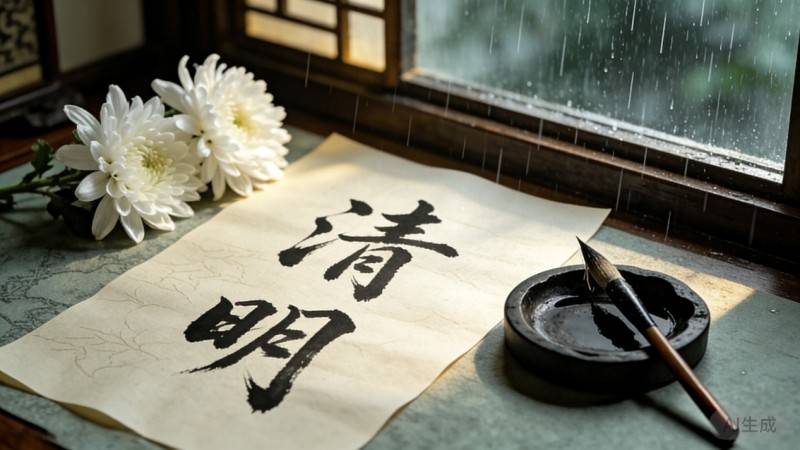 清
明
AI生成